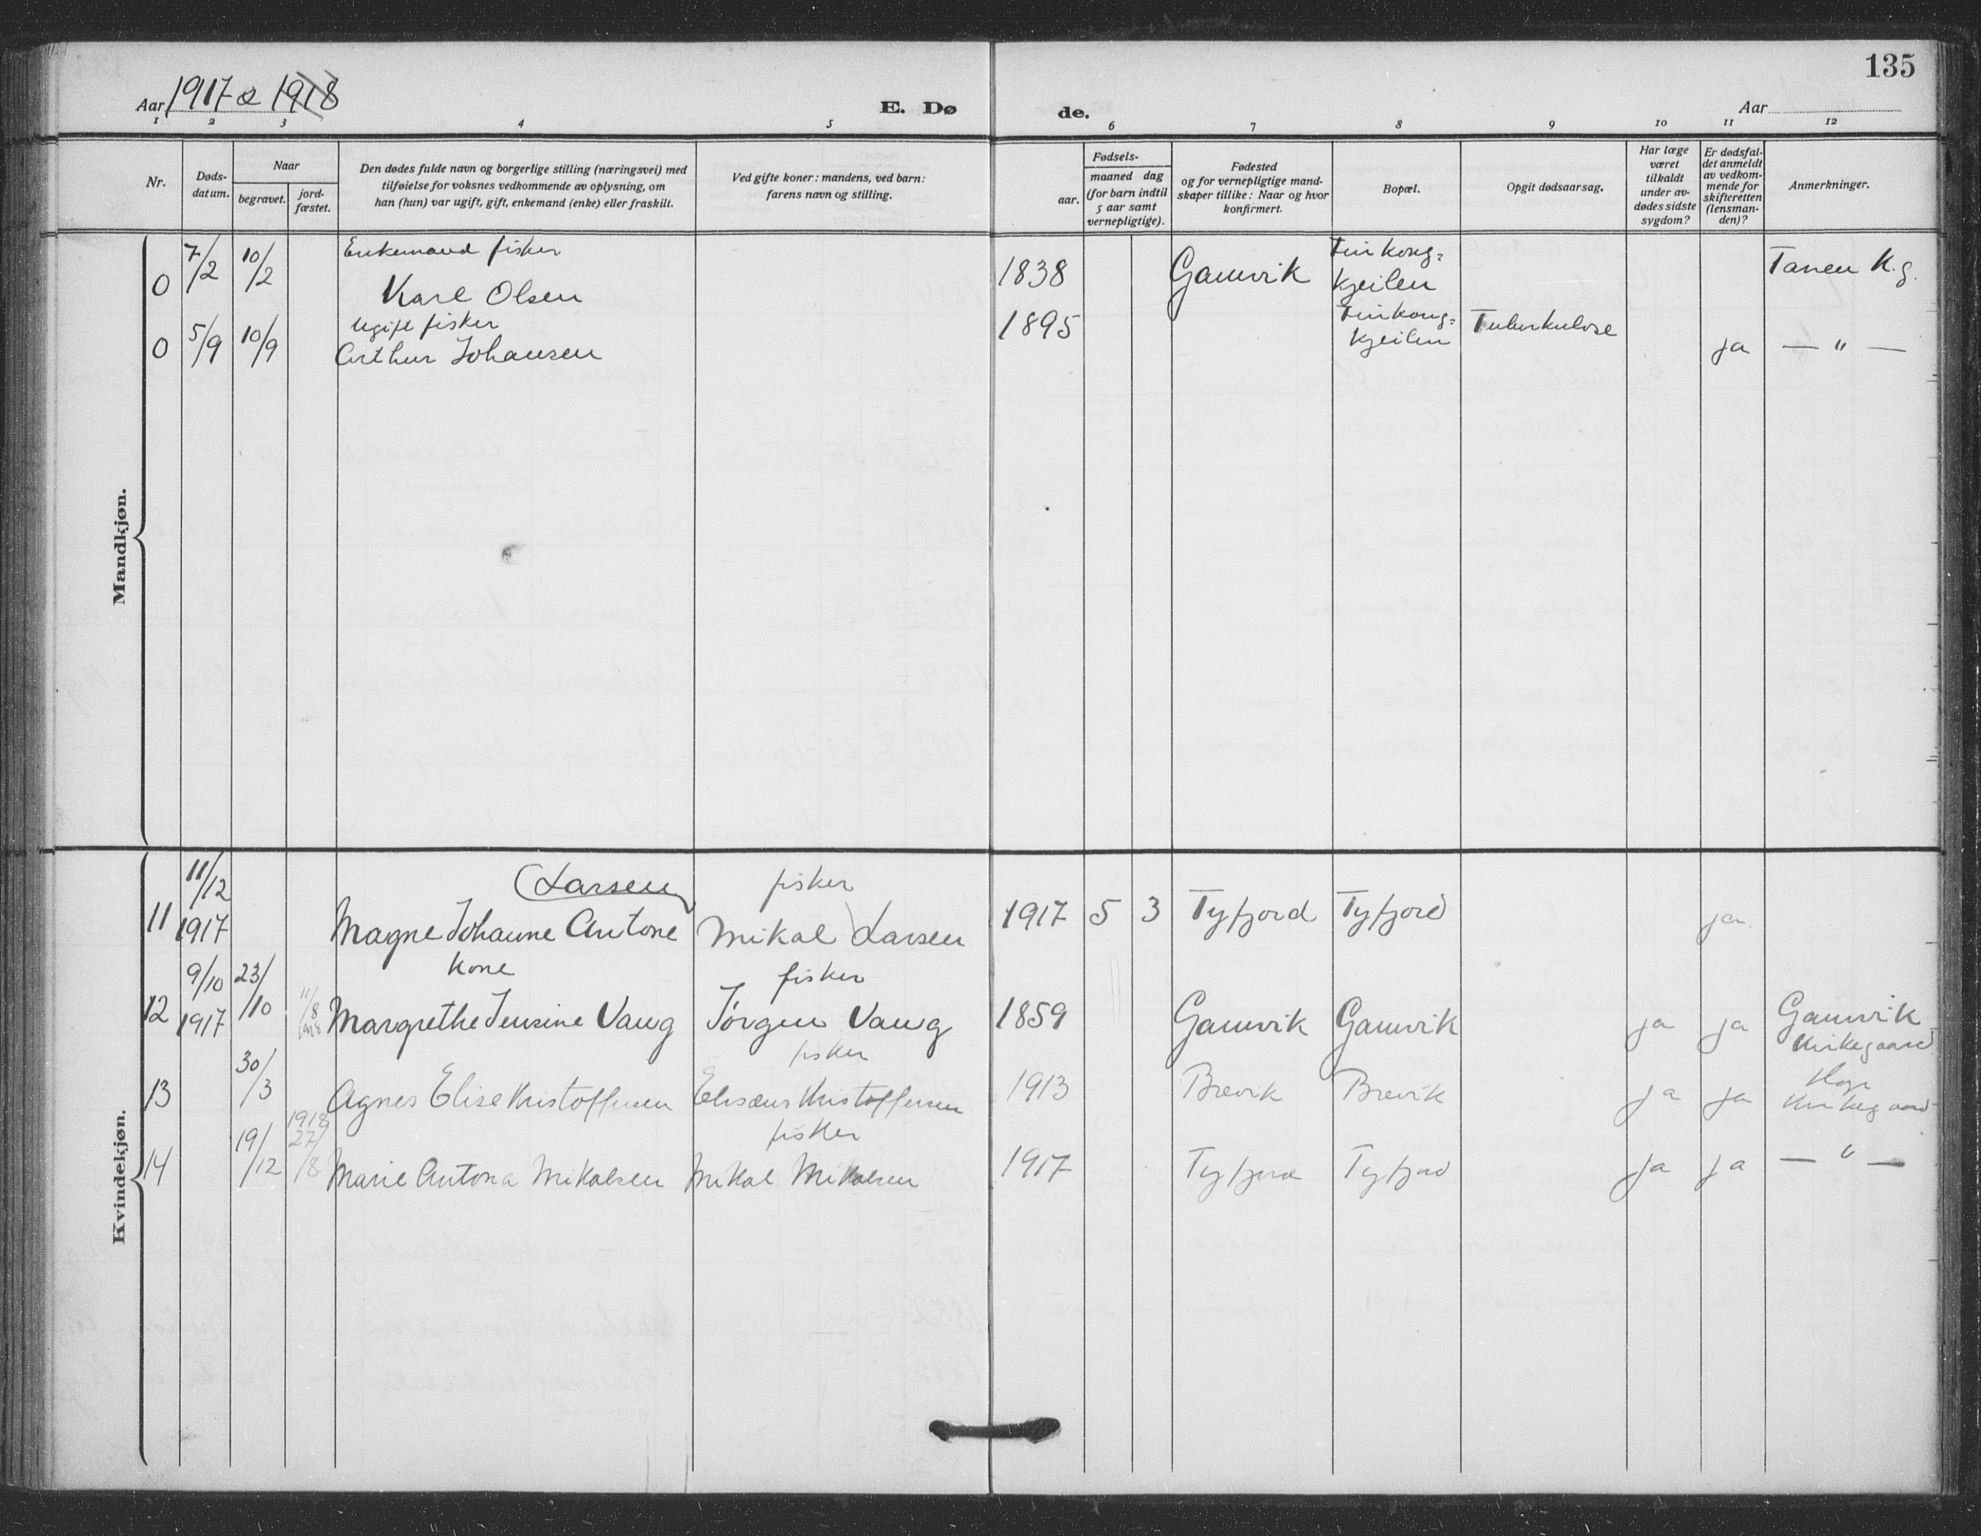 135
Aar 1917 & 1918
E. Dø
de.
Aar
1 2 3 4 5 6 7 8 9 10 11 12
Nr.
Døds-
datum.
Naar
begravet.
jord-
fæstet.
Den dødes fulde navn og borgerlige stilling (næringsvei) med
tilføielse for voksnes vedkommende av oplysning, om
han (hun) var ugift, gift, enkemand (enke) eller fraskilt.
Ved gifte koner: mandens, ved barn:
farens navn og stilling.
Fødsels-
aar.
maaned dag
(for barn indtil
5 aar samt
vernepligtige).
Fødested
og for vernepligtige mand-
skaper tillike: Naar og hvor
konfirmert.
Bopæl.
Opgit dødsaarsag.
Har læge
været
tilkaldt
under av-
dødes sidste
sygdom?
Er dødsfal-
det anmeldt
av vedkom-
mende for
skifteretten
(lensman-
den)?
Anmerkninger.
Mandkjøn.
Enkemand fisker Finkong= Tanen K.g.
0 7/2 10/2 Karl Olsen 1838 Gamvik kjeilen
Ugift fisker 1895 Finkong= Tuberkulose
0 5/9 10/9 Arthur Johansen kjeilen ja — " —
Kvindekjøn.
11/12 (Larsen) fisker
11 1917 Magne Johanne Antone Mikal Larsen 1917 5 3 Tyfjord Tyfjord ja
9/10 23/10 Kone fisker
12 1917 11/8 1918 Margrethe Jensine Vang Jørgen Vang 1859 Gamvik Gamvik ja ja Gamvik
Kirkegaard
30/3 fisker
13 Agnes Elise Kristoffersen Elisæus Kristoffersen 1913 Brevik Brevik ja ja Hop
Kirkegaard
1918
19/12 27/8 fisker
14 Marie Antona Mikalsen Mikal Mikalsen 1917 Tyfjord Tyfjord ja ja — " —